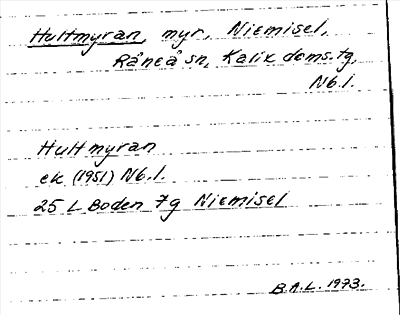 Hultmyran, myr, Niemisel,
Råneå sn, Kalix doms.tg,
Nb.l.
Hultmyran
ek (1951) Nb.l.
25 L Boden 7g Niemisel
B.A.L. 1973.